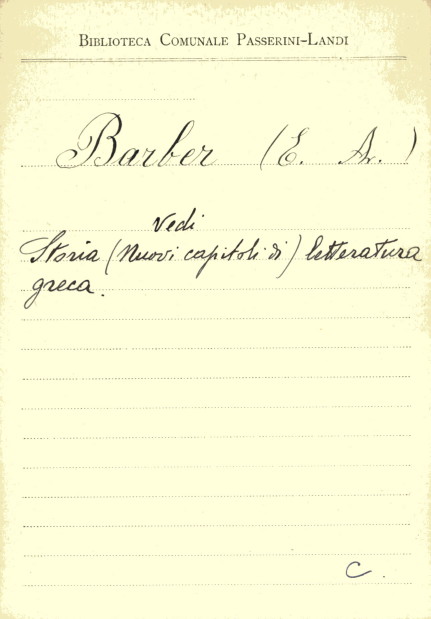 BIBLIOTECA COMUNALE PASSERINI-LANDI
Barber (E. Ar.)
Vedi
Storia (Nuovi capitoli di) letteratura
greca.
C.